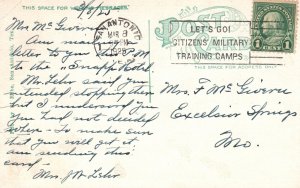 THIS SPACE FOR WRITING MESSAGES
4/8/31
Mrs McGiveren
Am mailing
letter to you
to the Snapp Hotel
Mr. Lehr said you
intended stopping there
but I understand you
you had not decided
when - To make sure
that you will get it
am sending this
card -
Mrs J.W. Lehr
POST
SAN ANTONIO
MAR 8
LET'S GO!
CITIZENS MILITARY
TRAINING CAMPS
1 CENT 1
THIS SPACE FOR ADDRESS ONLY
Mrs. F McGiveren
Excelsior Springs
Mo.